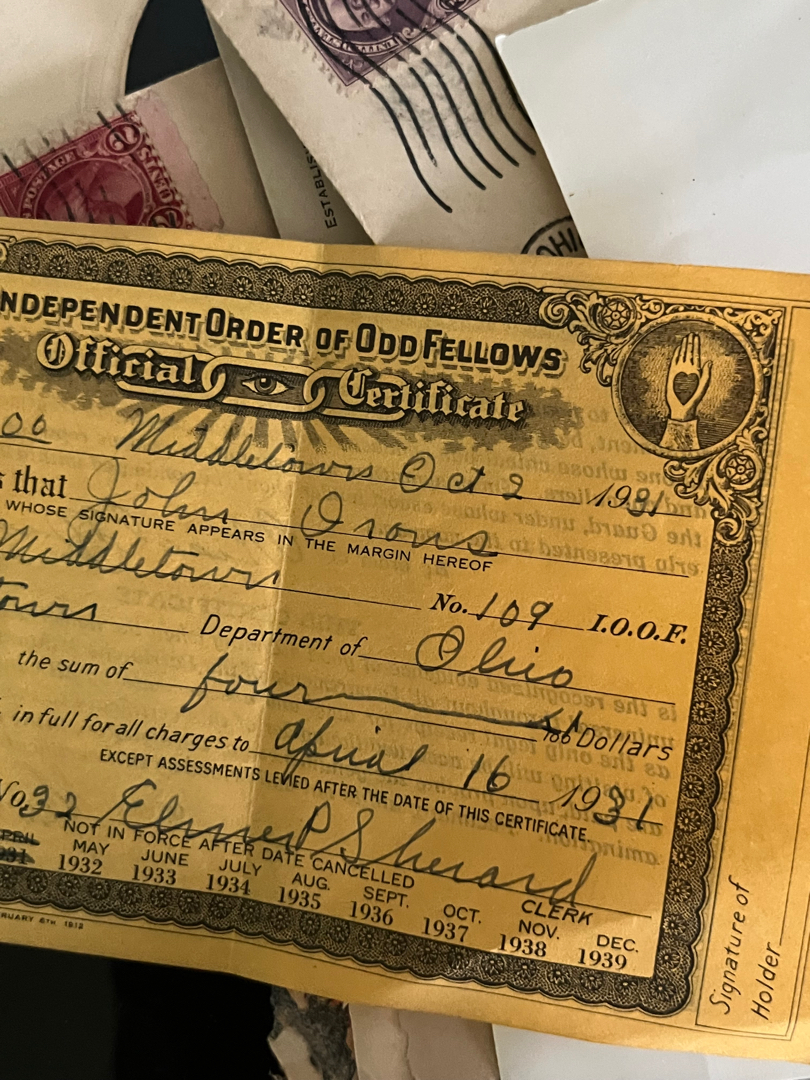 POSTAGE
ESTABLIS
OHI
INDEPENDENT ORDER OF ODD FELLOWS
Official Certificate
00 Middletown Oct 2 1931
s that John Irons
WHOSE SIGNATURE APPEARS IN THE MARGIN HEREOF
Middletown No. 109 I.O.O.F.
town Department of Ohio
the sum of four 100 Dollars
in full for all charges to April 16 1931
EXCEPT ASSESSMENTS LEVIED AFTER THE DATE OF THIS CERTIFICATE.
No. 32 Elmer P Sherard
CLERK
NOT IN FORCE AFTER DATE CANCELLED
APRIL MAY JUNE JULY AUG. SEPT. OCT. NOV. DEC.
931 1932 1933 1934 1935 1936 1937 1938 1939
RUARY 6TH 1912
Signature of
Holder